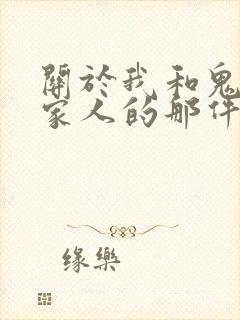 關於我和鬼
家人的那件
缘樂